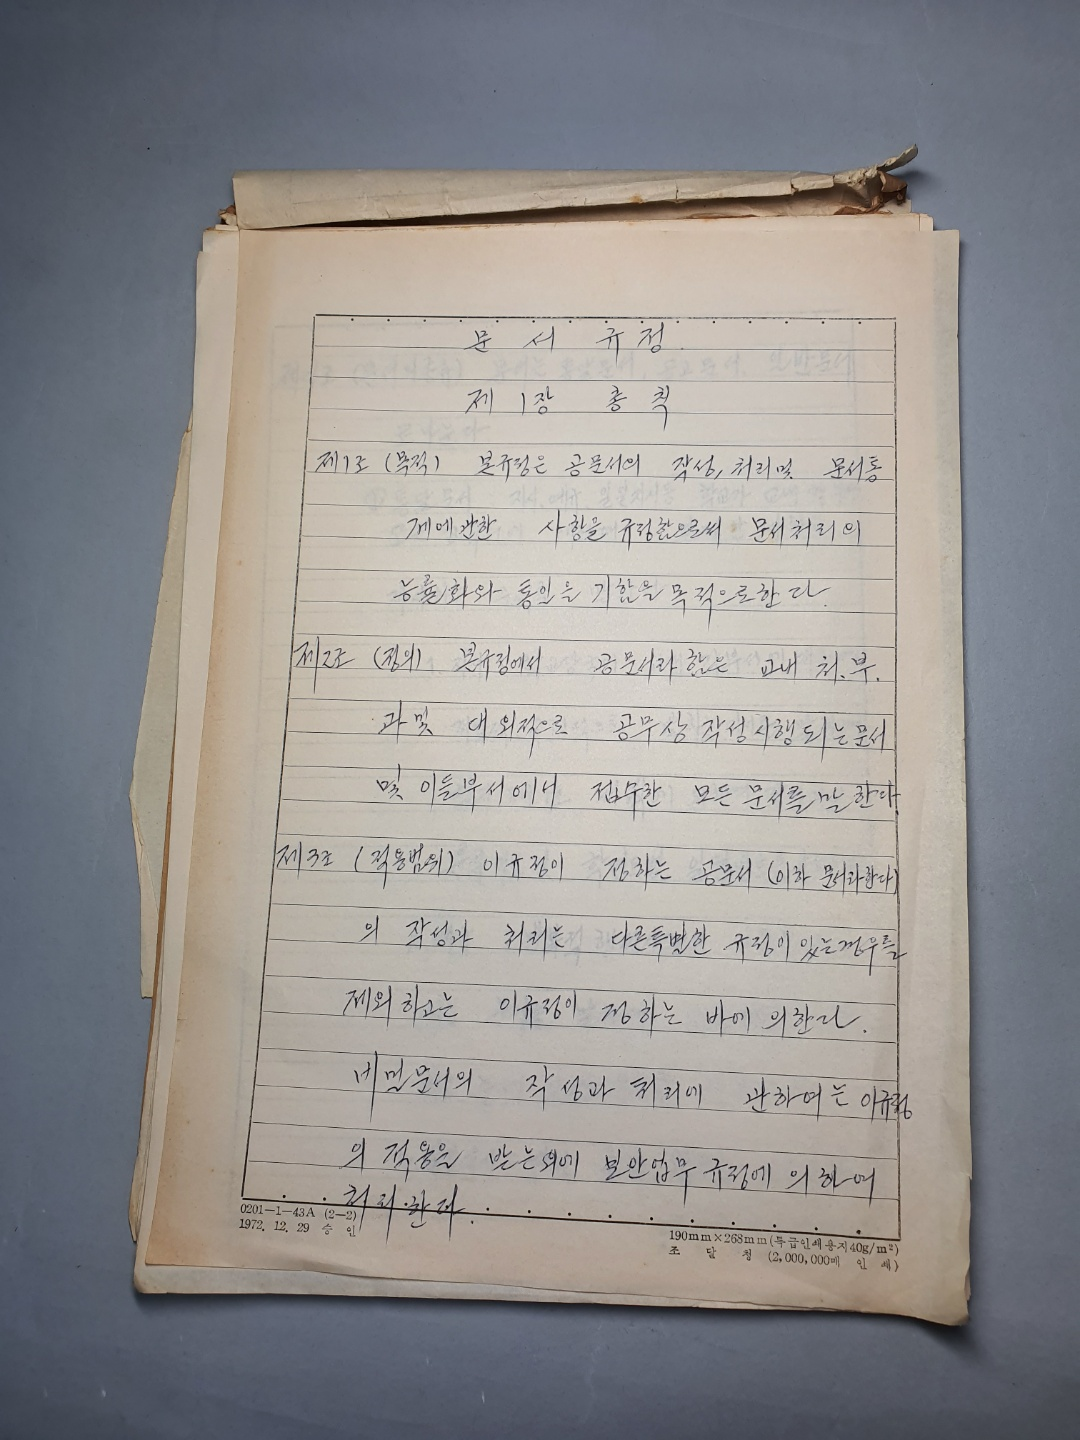 문 서 규 정.
제 1장 총 칙
제1조 (목적) 본규정은 공문서의 작성, 처리및 문서통
제에관한 사항을 규정함으로써 문서처리의
능률화와 통일을 기함을 목적으로한다.
제2조 (정의) 본규정에서 공문서라 함은 교내 처.부.
과및 대외적으로 공무상 작성시행되는문서
및 이들부서에서 접수한 모든 문서를 말한다
제3조 (적용범위) 이규정이 정하는 공문서 (이하 문서라한다)
의 작성과 처리는 다른특별한 규정이 있는경우를
제외하고는 이규정이 정하는 바에 의한다.
비밀문서의 작성과 처리에 관하여는 이규정
의 적용을 받는외에 보안업무규정에 의하여
처리한다.
0201-1-43A (2-2)
1972. 12. 29 승 인
190mm×268mm(특급인쇄용지40g/m²)
조 달 청 (2,000,000매 인 쇄)